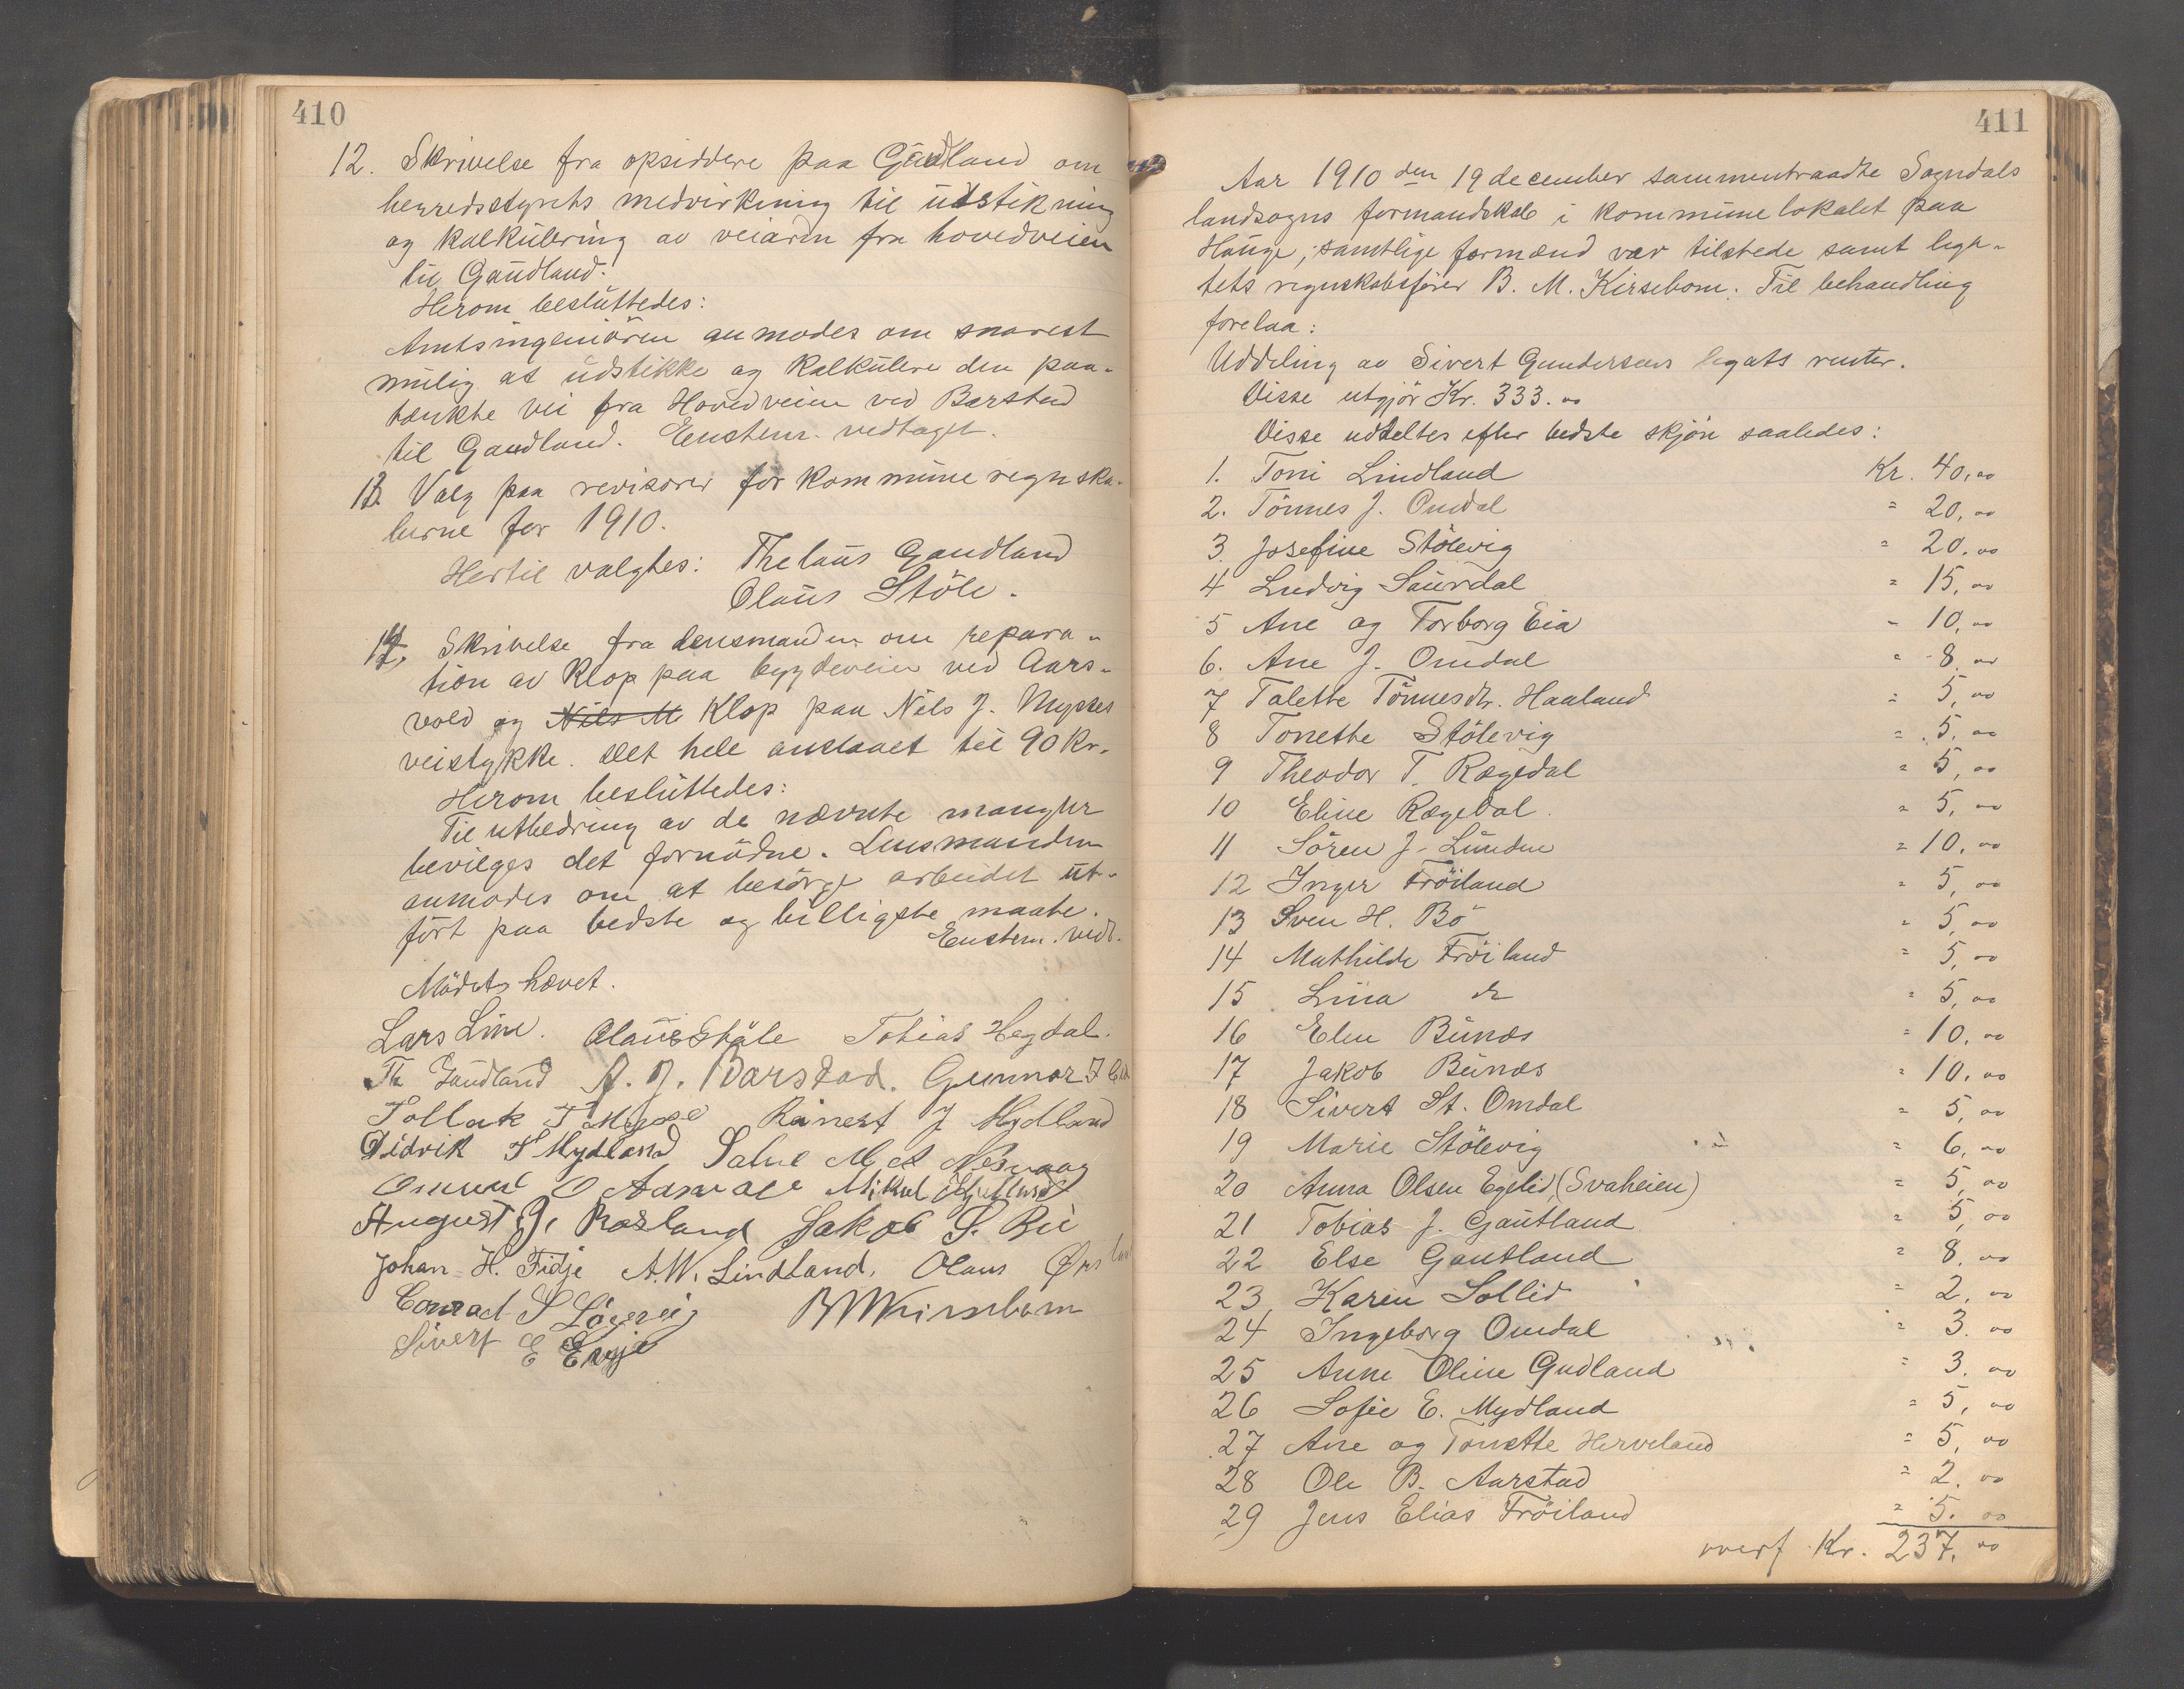 410
12. Skrivelse fra opsiddere paa Gaudland om
herredsstyrets medvirkning til udstikning
og kalkulering av veiarm fra hovedveien
til Gaudland.
Herom besluttedes:
Amtsingeniören anmodes om snarest
mulig at udstikke og kalkulere den paa-
tænkte vei fra Hovedveien ved Barstad
til Gaudland. Enstem. vedtaget.
13. Valg paa revisorer for kommuneregnska-
berne for 1910.
Hertil valgtes: Thelaus Gaudland
Olaus Stöle.
14. Skrivelse fra lensmanden om repara-
tion av Klop paa bygdeveien ved Aars-
vold og Nils M Klop paa Nils J. Mysses
veistykke. Det hele anslaaet til 90 Kr.
Herom besluttedes:
Til utbedring av de nævnte mangler
bevilges det fornödne. Lensmanden
anmodes om at besörge arbeidet ut-
fört paa bedste og billigste maate.
Enstem. vedt.
Mödet hævet.
Lars Line. Olaus Støle Tobias Hegdal.
Th Gaudland A. J. Barstad. Gunnar T
Tollak T Mysse Rånert J Mydland
Didrik T Mydland Salve M A Nesvaag
Omund O Aasvold Mikal
August G. Rosland Jakob S. Bu
Johan H. Fidje A.W. Lindland, Olaus Ørsland
Conrad S Løgevig BMKirsebom
Sivert E Eigje
411
Aar 1910 den 19 december sammentraadte Sogndals
landsogns formandskab i kommunelokalet paa
Hauge; samtlige formænd var tilstede samt lega-
tets regnskabsförer B. M. Kirsebom. Til behandling
forelaa:
Uddeling av Sivert Gundersens legats renter.
Disse utgjör Kr. 333.00
Disse uddeltes efter bedste skjön saaledes:
1. Toni Lindland Kr. 40,00
2. Tönnes J. Omdal " 20,00
3. Josefine Stölevig " 20.00
4 Ludvig Saurdal " 15,00
5 Ane og Torborg Eia " 10,00
6. Ane J. Omdal " 8,00
7 Talette Tönnesdr. Haaland " 5,00
8 Tonethe Stölevig " 5.00
9 Theodor T. Rægedal " 5,00
10 Eline Rægedal. " 5,00
11 Sören J. Lunden " 10.00
12 Inger Fröiland " 5,00
13 Sven H. Bö " 5,00
14 Mathilde Fröiland " 5,00
15 Lina do " 5,00
16 Elen Bunæs " 10.00
17 Jakob Bunæs " 10.00
18 Sivert St. Omdal " 5,00
19 Marie Stölevig " 6,00
20 Anna Olsen Egelid (Svaheien) " 5,00
21 Tobias J. Gautland " 5,00
22 Else Gautland " 8.00
23 Karen Sollid " 2,00
24 Ingeborg Omdal " 3.00
25 Anne Oline Gudland " 3.00
26 Sofie E. Mydland " 5,00
27 Ane og Tonette Herveland " 5,00
28 Ole B. Aarstad " 2.00
29 Jens Elias Fröiland " 5.00
overf Kr. 237.00